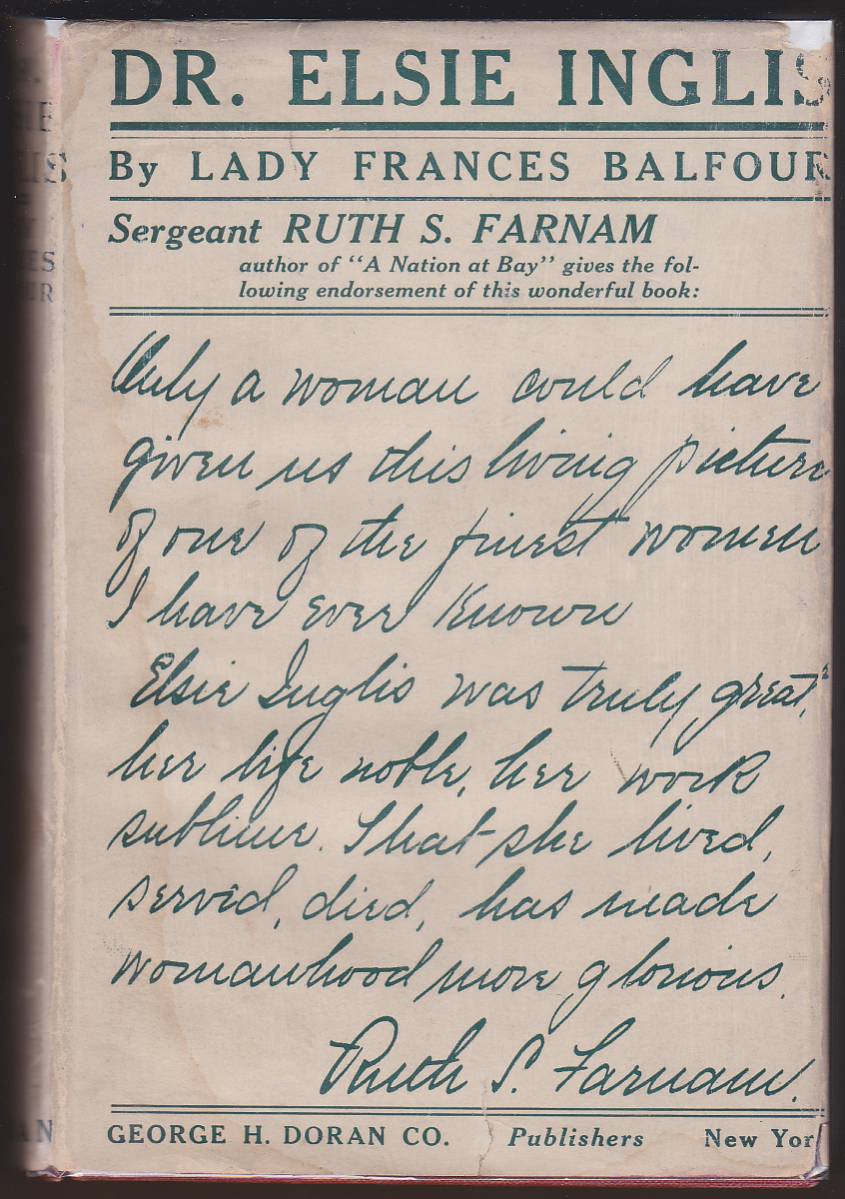 DR. ELSIE INGLIS
By LADY FRANCES BALFOUR
Sergeant RUTH S. FARNAM
author of "A Nation at Bay" gives the fol-
lowing endorsement of this wonderful book:
Only a woman could have
given us this living picture
of one of the finest women
I have ever known
Elsie Inglis was truly great,
her life noble, her work
sublime. That she lived,
served, died, has made
womanhood more glorious.
Ruth S. Farnam.
GEORGE H. DORAN CO. Publishers New Yor